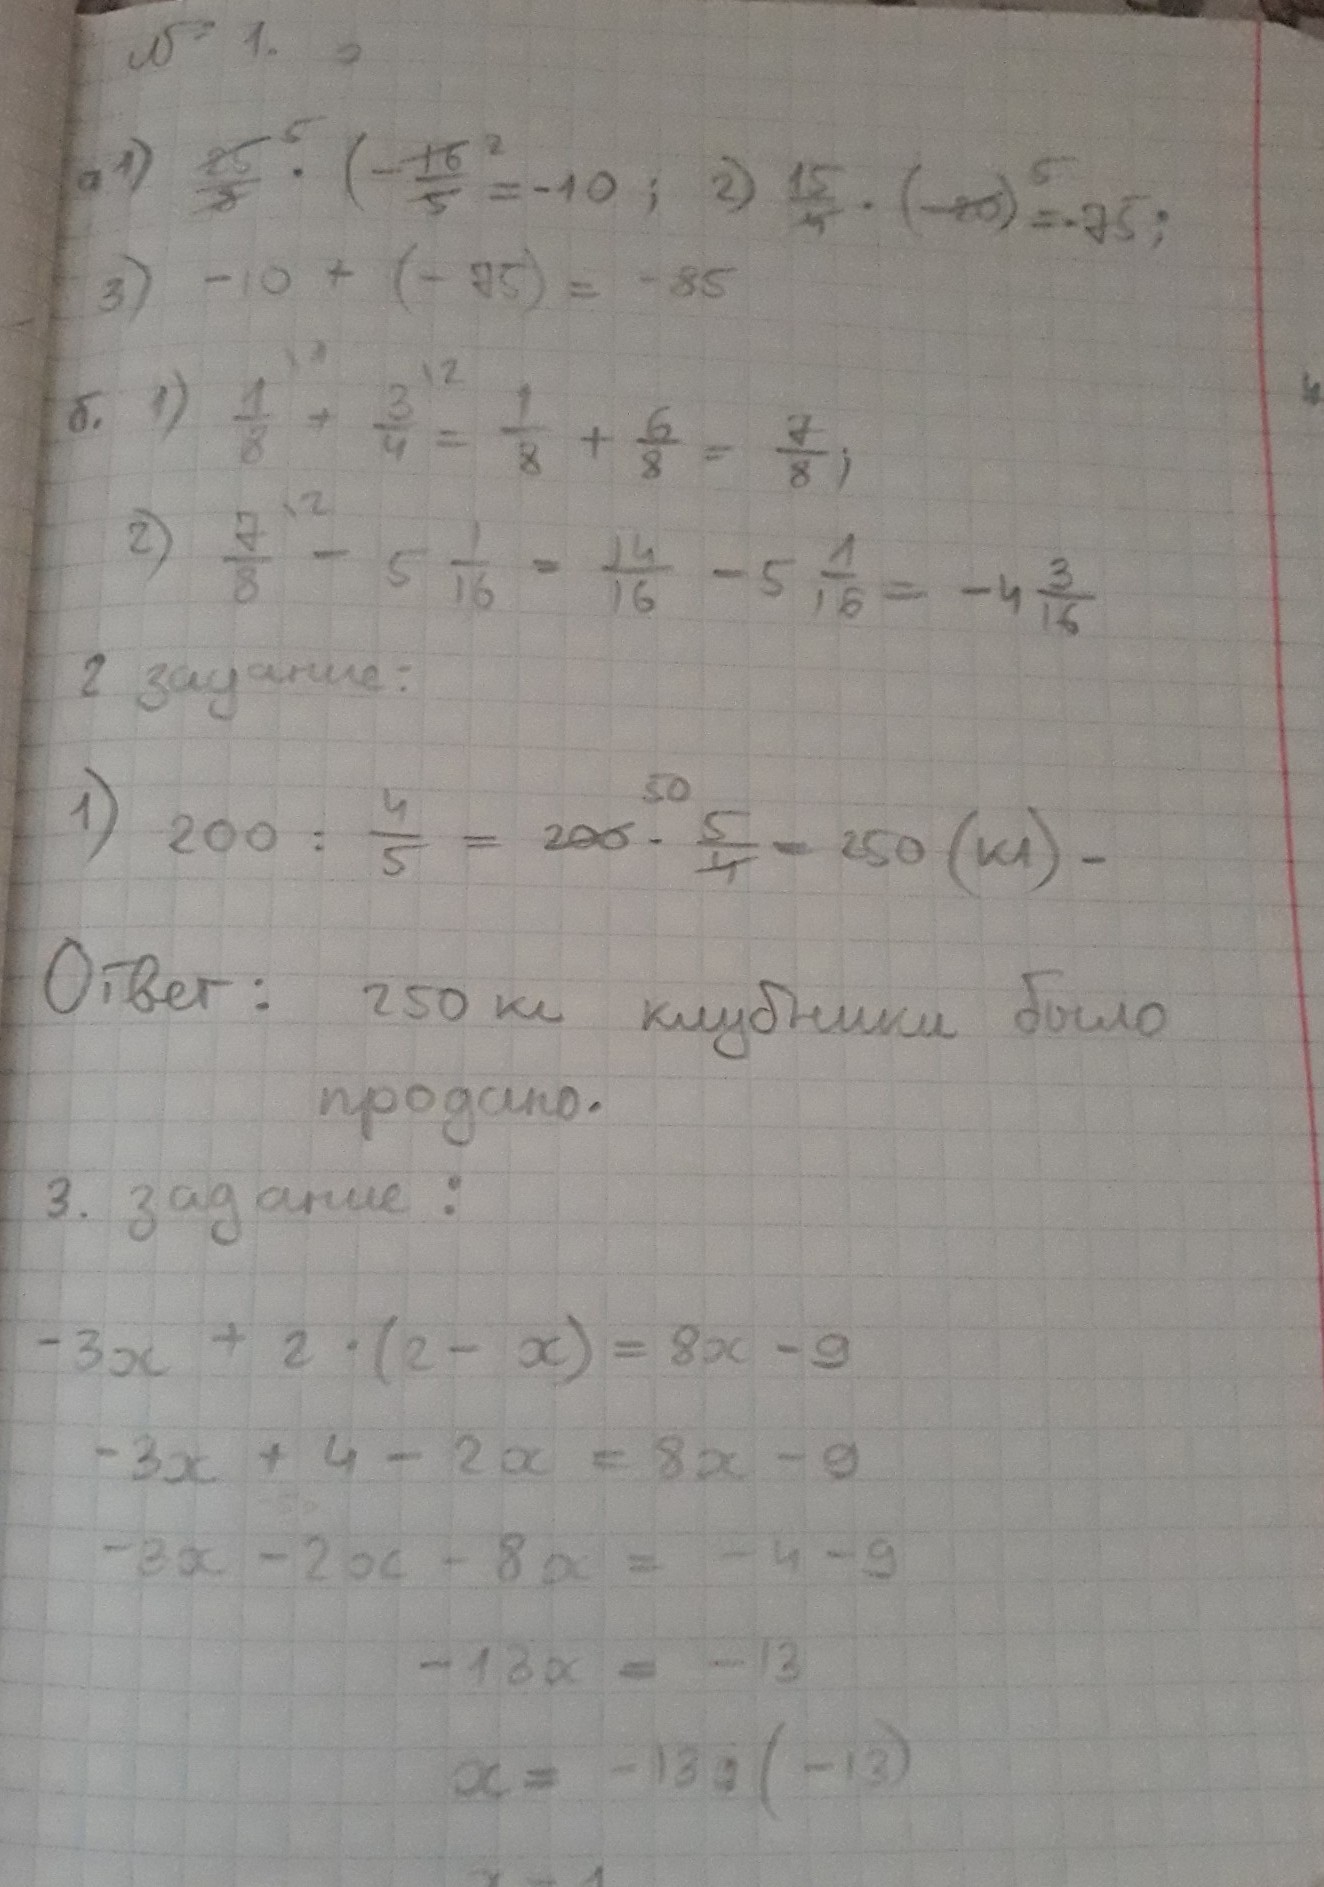 № 1.
а 1) 25/8 5 · (-16/5 2 = -10 ; 2) 15/4 · (-20) 5 = -75;
3) -10 + (-75) = -85
б. 1) 1/8 \1 + 3/4 \2 = 1/8 + 6/8 = 7/8;
2) 7/8 \2 - 5 1/16 = 14/16 - 5 1/16 = -4 3/16
2 задание:
1) 200 : 4/5 = 200 50 · 5/4 = 250 (кг) -
Ответ: 250 кг клубники было
продано.
3. задание:
-3x + 2 · (2 - x) = 8x - 9
-3x + 4 - 2x = 8x - 9
-3x - 2x - 8x = -4 - 9
-13x = -13
x = -13 : (-13)
x = 1